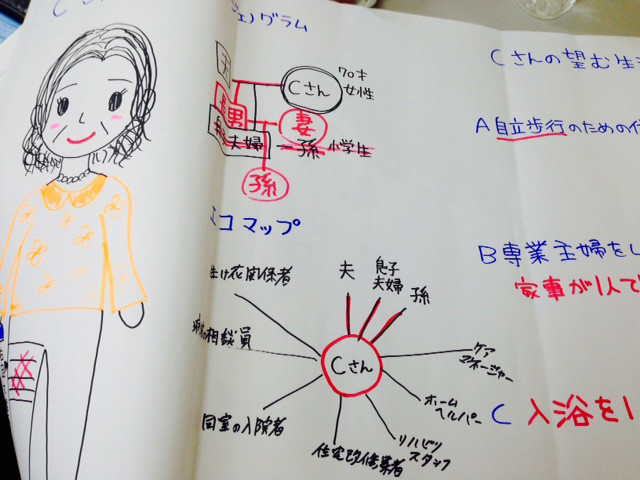 ジェノグラム
夫
Cさん
70才
女性
長男
妻
夫婦
孫 小学生
孫
エコマップ
生け花関係者
病院の相談員
同室の入院者
夫
息子
夫婦
孫
Cさん
ケア
マネージャー
ホーム
ヘルパー
リハビリ
スタッフ
住宅改修業者
Cさんの望む生
A 自立歩行のための
B 専業主婦をし
家事が1人で
C 入浴を1